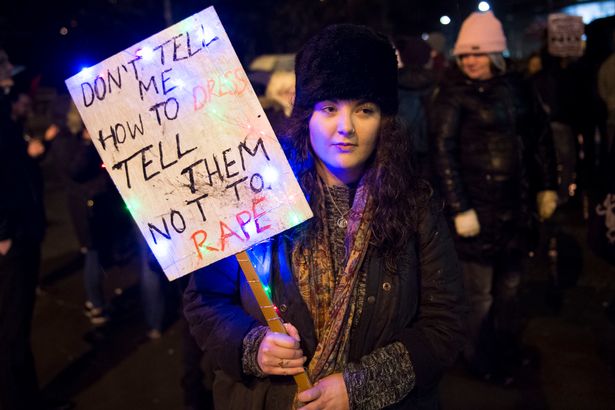 DON'T TELL
ME
HOW TO DRESS
TELL THEM
NOT TO
RAPE